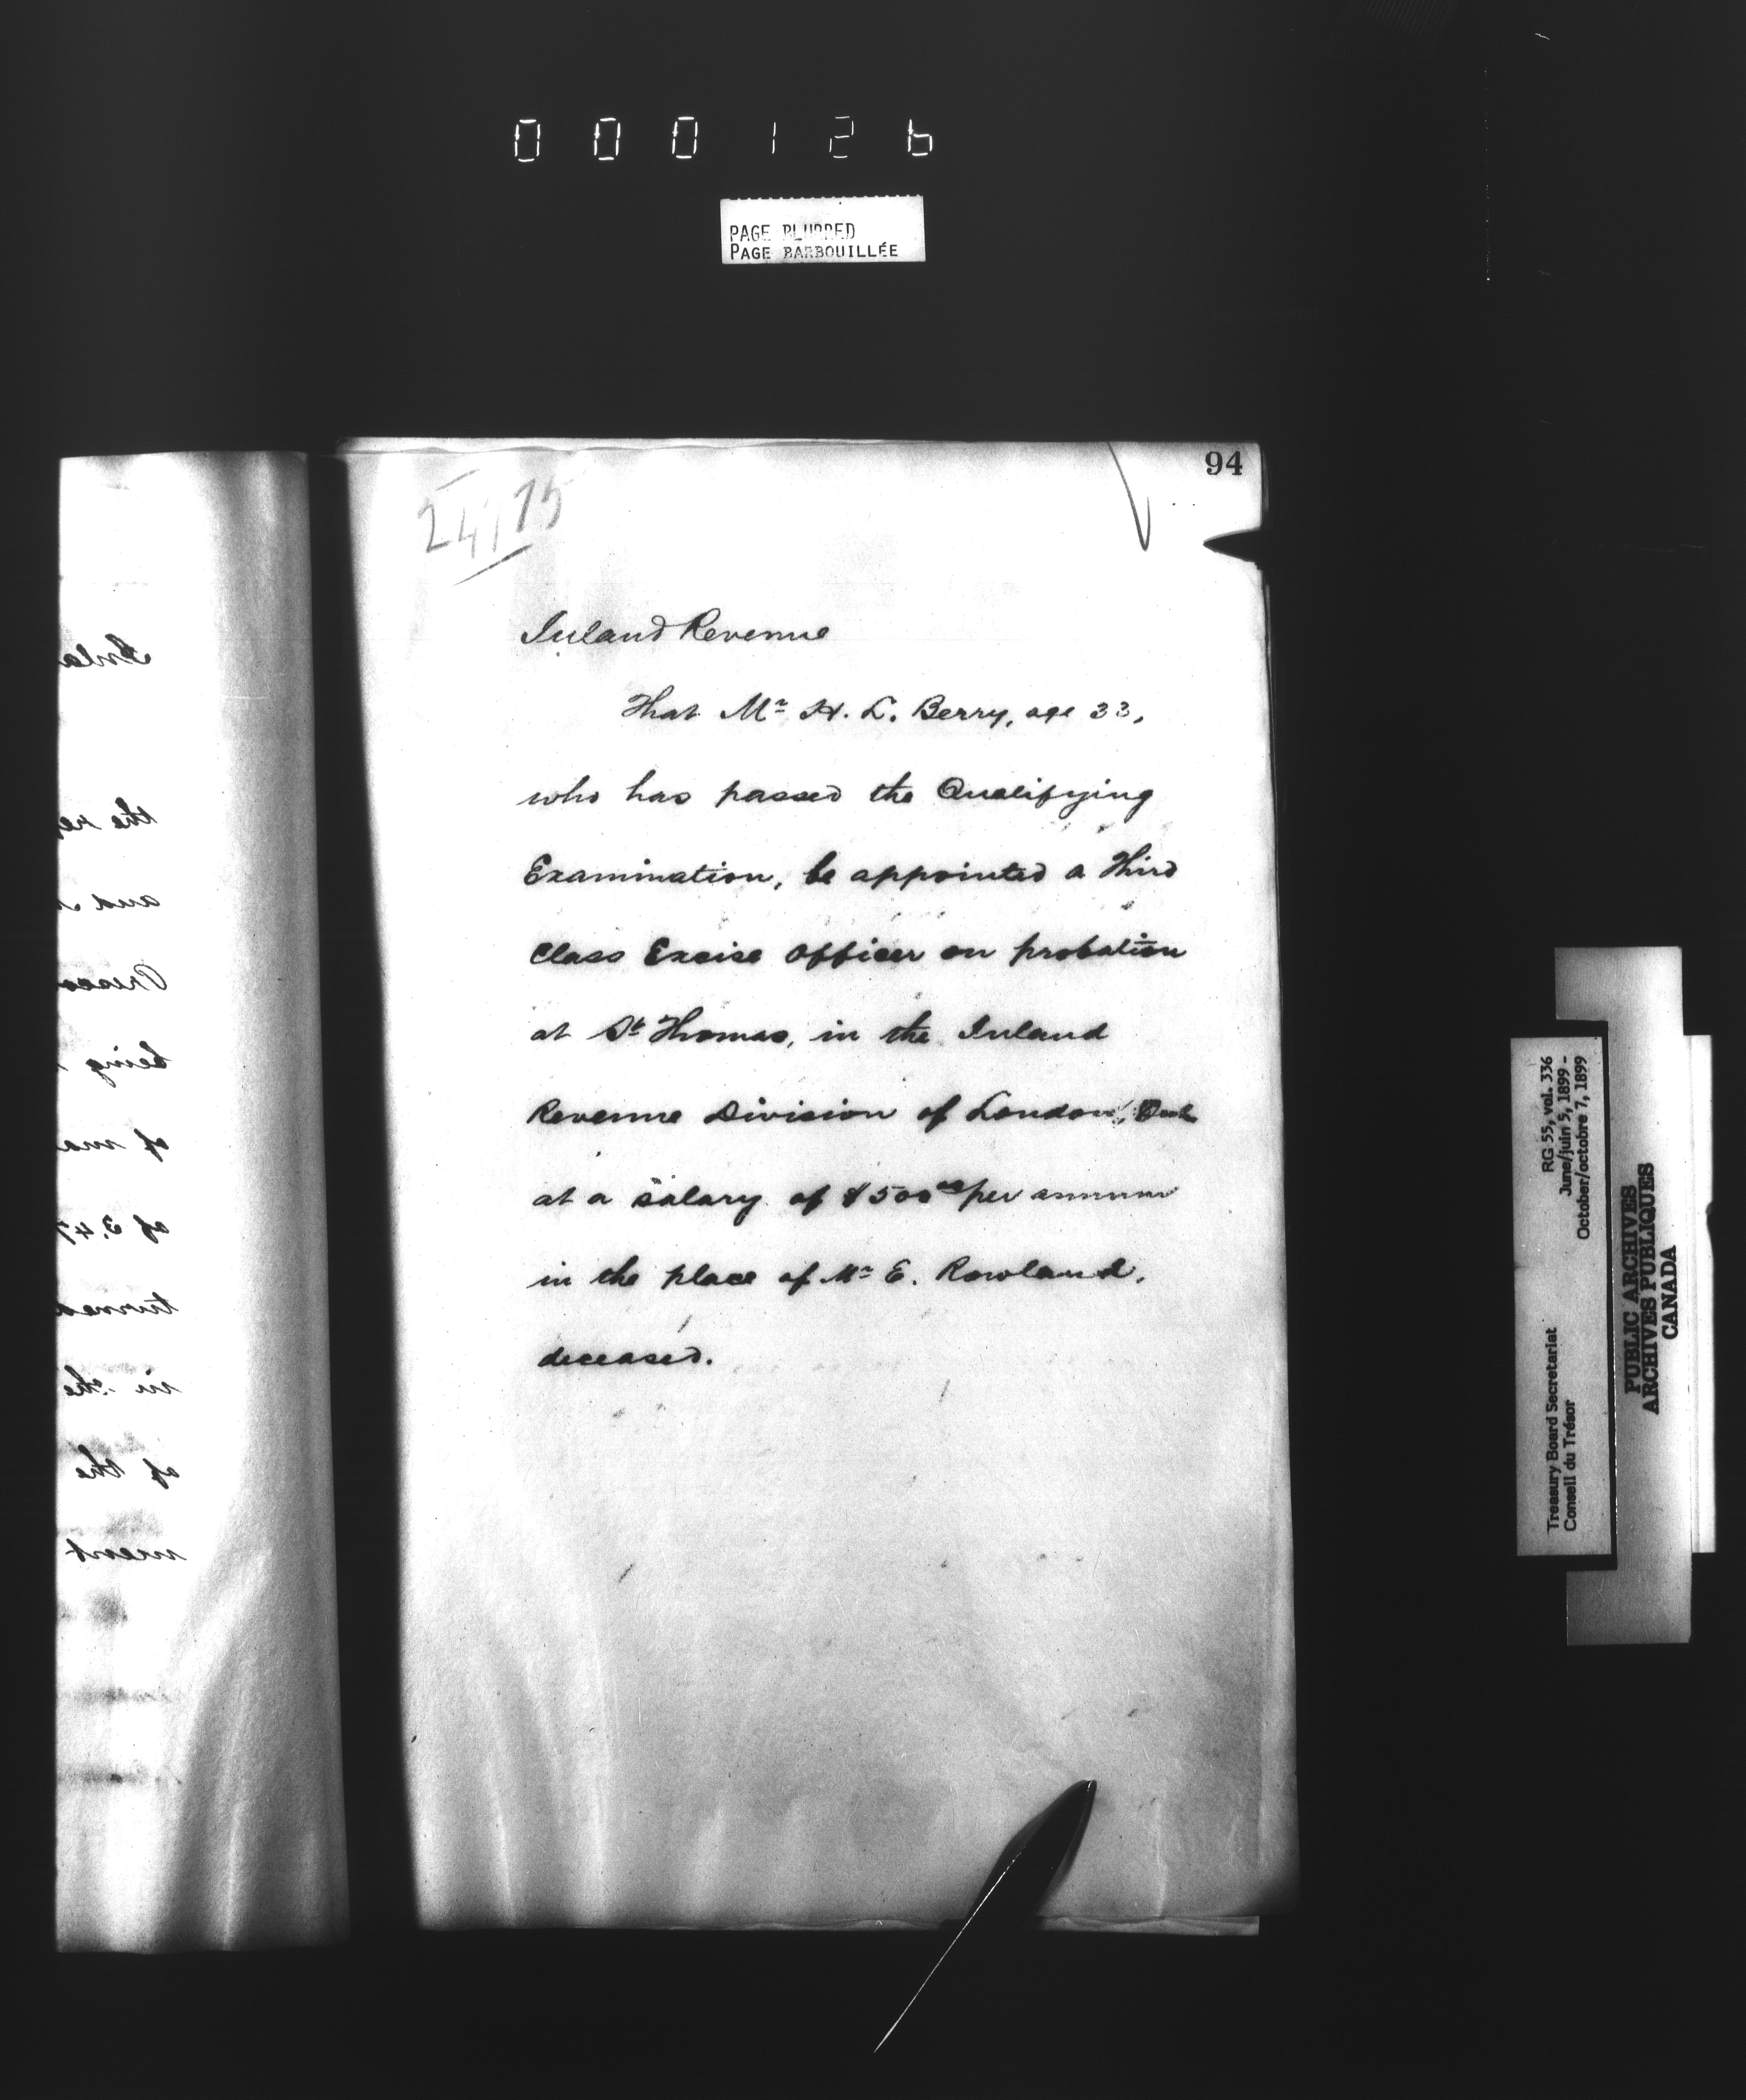 000126
PAGE BLURRED
PAGE BARBOUILLÉE
94
Inland Revenue
That Mr H. L. Berry, age 33,
who has passed the Qualifying
Examination, be appointed a Third
Class Excise Officer on probation
at St Thomas, in the Inland
Revenue Division of London, Ont
at a salary of $500.00 per annum
in the place of Mr E. Rowland,
deceased.
Inla
the re
and
being
of ma
of 3.47
turned
in the
of the
ment
RG 55, vol. 336
June/juin 5, 1899 -
October/octobre 7, 1899
Treasury Board Secretariat
Conseil du Trésor
PUBLIC ARCHIVES
ARCHIVES PUBLIQUES
CANADA